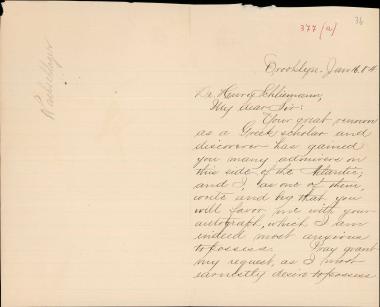 377 (a)
36
Brooklyn. Jan 16. 84
Dr. Henry Schliemann,
My dear Sir:
Your great renown
as a Greek scholar and
discoverer has gained
you many admirers on
this side of the Atlantic;
and I, as one of them,
write and beg that you
will favor me with your
autograph, which I am
indeed most anxious
to possess. Pray grant
my request, as I most
earnestly desire to possess